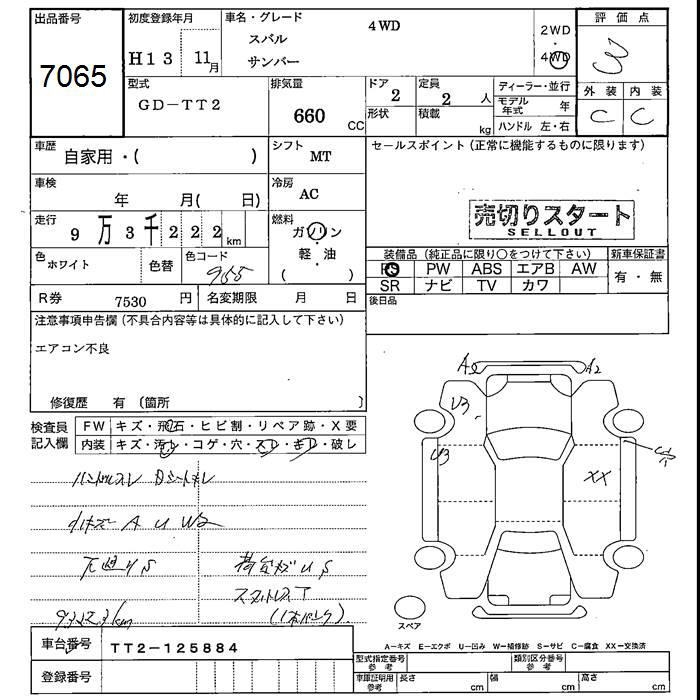 出品番号
7065
初度登録年月
H13 11月
車名・グレード
スバル
サンバー
4WD
2WD
4WD
評価点
3
外装 内装
C C
型式
GD-TT2
排気量
660 CC
ドア
2
形状
定員
2 人
積載
kg
ディーラー・並行
モデル年式 年
ハンドル 左・右
車歴
自家用・( )
シフト
MT
セールスポイント (正常に機能するものに限ります)
車検
年 月( 日)
冷房
AC
売切りスタート
SELLOUT
走行
9万3千222km
燃料
ガソリン
軽・油
( )
色
ホワイト
色替
色コード
955
装備品 (純正品に限り○をつけて下さい)
新車保証書
PS PW ABS エアB AW
SR ナビ TV カワ
有・無
R券 7530 円
名変期限 月 日
後日品
注意事項申告欄 (不具合内容等は具体的に記入して下さい)
エアコン不良
修復歴 有 (箇所 )
検査員
記入欄
FW キズ・飛石・ヒビ割・リペア跡・X要
内装 キズ・汚レ・コゲ・穴・スレ・キレ・破レ
ハンドルスレ Dシートキレ
小キズ A U W2
下廻りS
荷台キズ U S
スタッドレスT
93223km
A2
A2
U3
U3
XX
スペア
車台番号
TT2-125884
A-キズ E-エクボ U-凹み W-補修跡 S-サビ C-腐食 XX-交換済
登録番号
型式指定番号
参考
類別区分番号
参考
車庫証明用
参考
長さ cm 幅 cm 高さ cm